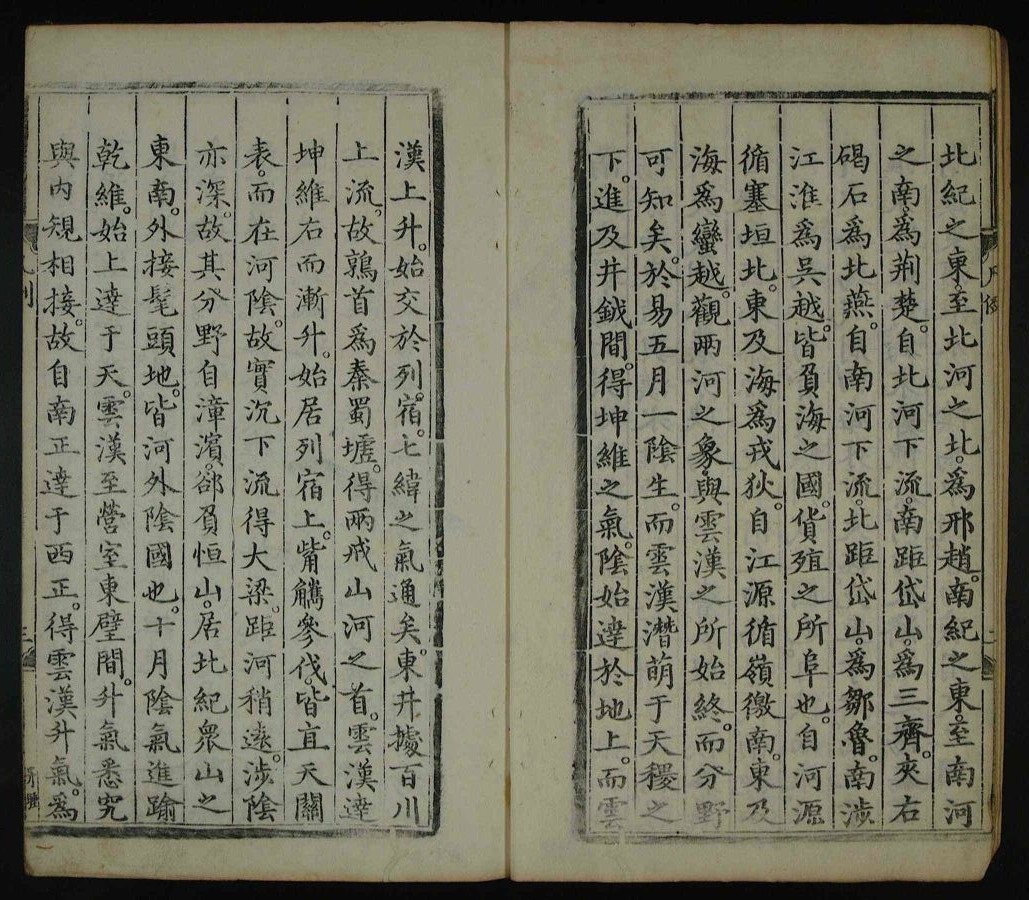 北紀之東。至北河之北。爲邢趙。南紀之東。至南河
之南。爲荆楚。自北河下流。南距岱山。爲三齊。夾右
碣石。爲北燕。自南河下流。北距岱山。爲鄒魯。南涉
江淮。爲吳越。皆負海之國。貨殖之所阜也。自河源
循塞垣北。東及海。爲戎狄。自江源循嶺徼南。東及
海。爲蠻越。觀兩河之象。與雲漢之所始終。而分野
可知矣。於易五月一陰生。而雲漢潛萌于天稷之
下。進及井鉞間。得坤維之氣。陰始達於地上。而雲
漢上升。始交於列宿。七緯之氣通矣。東井據百川
上流。故鶉首爲秦蜀墟。得兩戒山河之首。雲漢達
坤維右而漸升。始居列宿上。觜觿參伐。皆直天關
表。而在河陰。故實沉下流得大梁。距河稍遠。涉陰
亦深。故其分野自漳濱。郤負恒山。居北紀衆山之
東南。外接髦頭地。皆河外陰國也。十月陰氣進踰
乾維。始上達于天。雲漢至營室東壁間。升氣悉究
與內規相接。故自南正達于西正。得雲漢升氣。爲